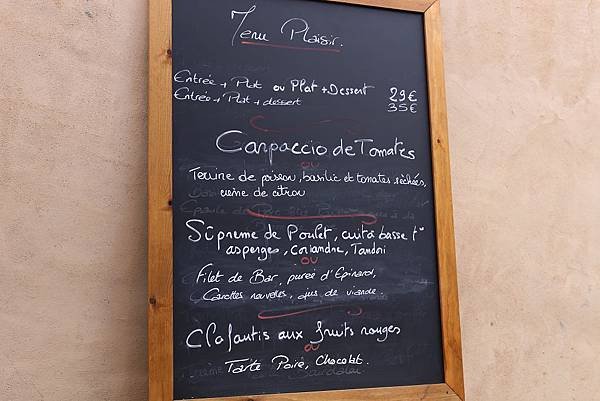 Menu Plaisir.
Entrée + Plat ou Plat + Dessert 29€
Entrée + Plat + dessert 35€
Carpaccio de Tomates
ou
Terrine de poisson, basilic et tomates séchées,
crème de citron
Suprême de Poulet, cuit à basse t°
asperges, coriandre, Tandori
OU
Filet de Bar, purée d'Epinard,
Carottes nouvelles, ajus de viande.
Clafoutis aux fruits rouges
ou
Tarte Poire, Chocolat.